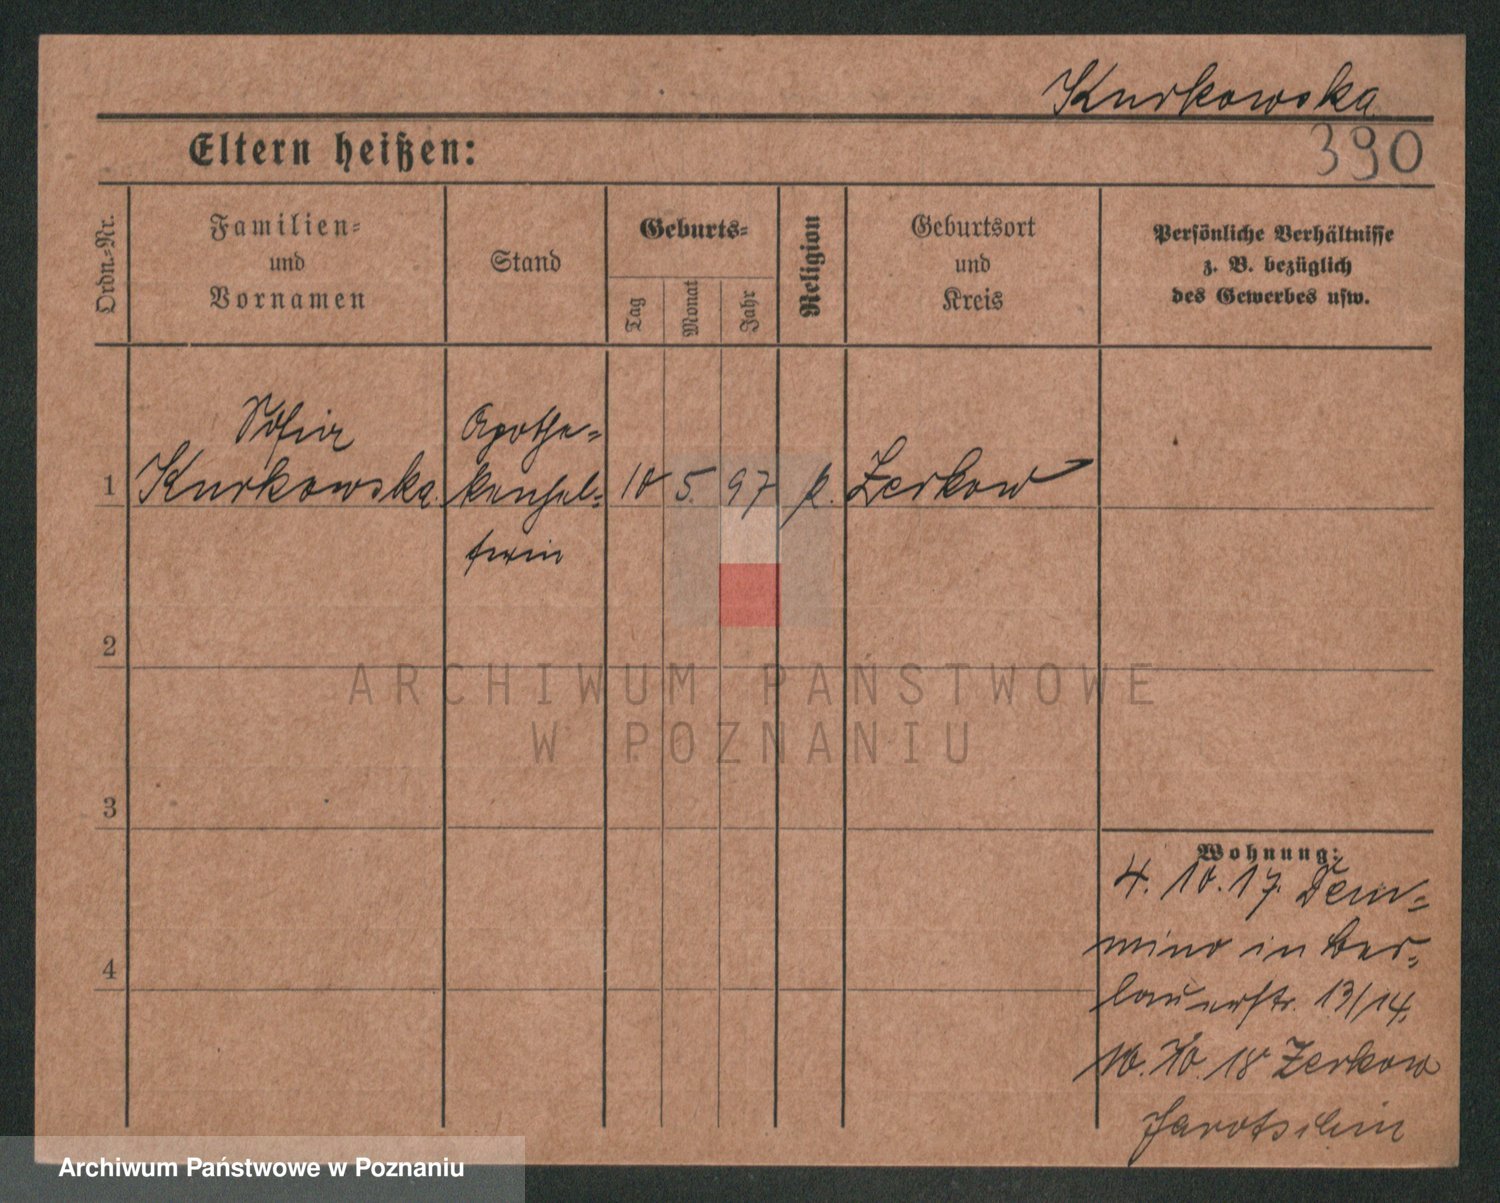 Kurkowska
390
Eltern heißen:
Ordn.-Nr.
Familien-
und
Vornamen
Stand
Geburts-
Tag
Monat
Jahr
Religion
Geburtsort
und
Kreis
Persönliche Verhältnisse
z. B. bezüglich
des Gewerbes usw.
1
Sofia
Kurkowska
Apothe-
kengehil-
fin
10
5.
97
k.
Zerkow
2
ARCHIWUM PAŃSTWOWE
W POZNANIU
3
4
Wohnung:
4. 10. 17.
in Ber-
13/14.
10. 10. 18 Zerkow
Jarotschin
Archiwum Państwowe w Poznaniu